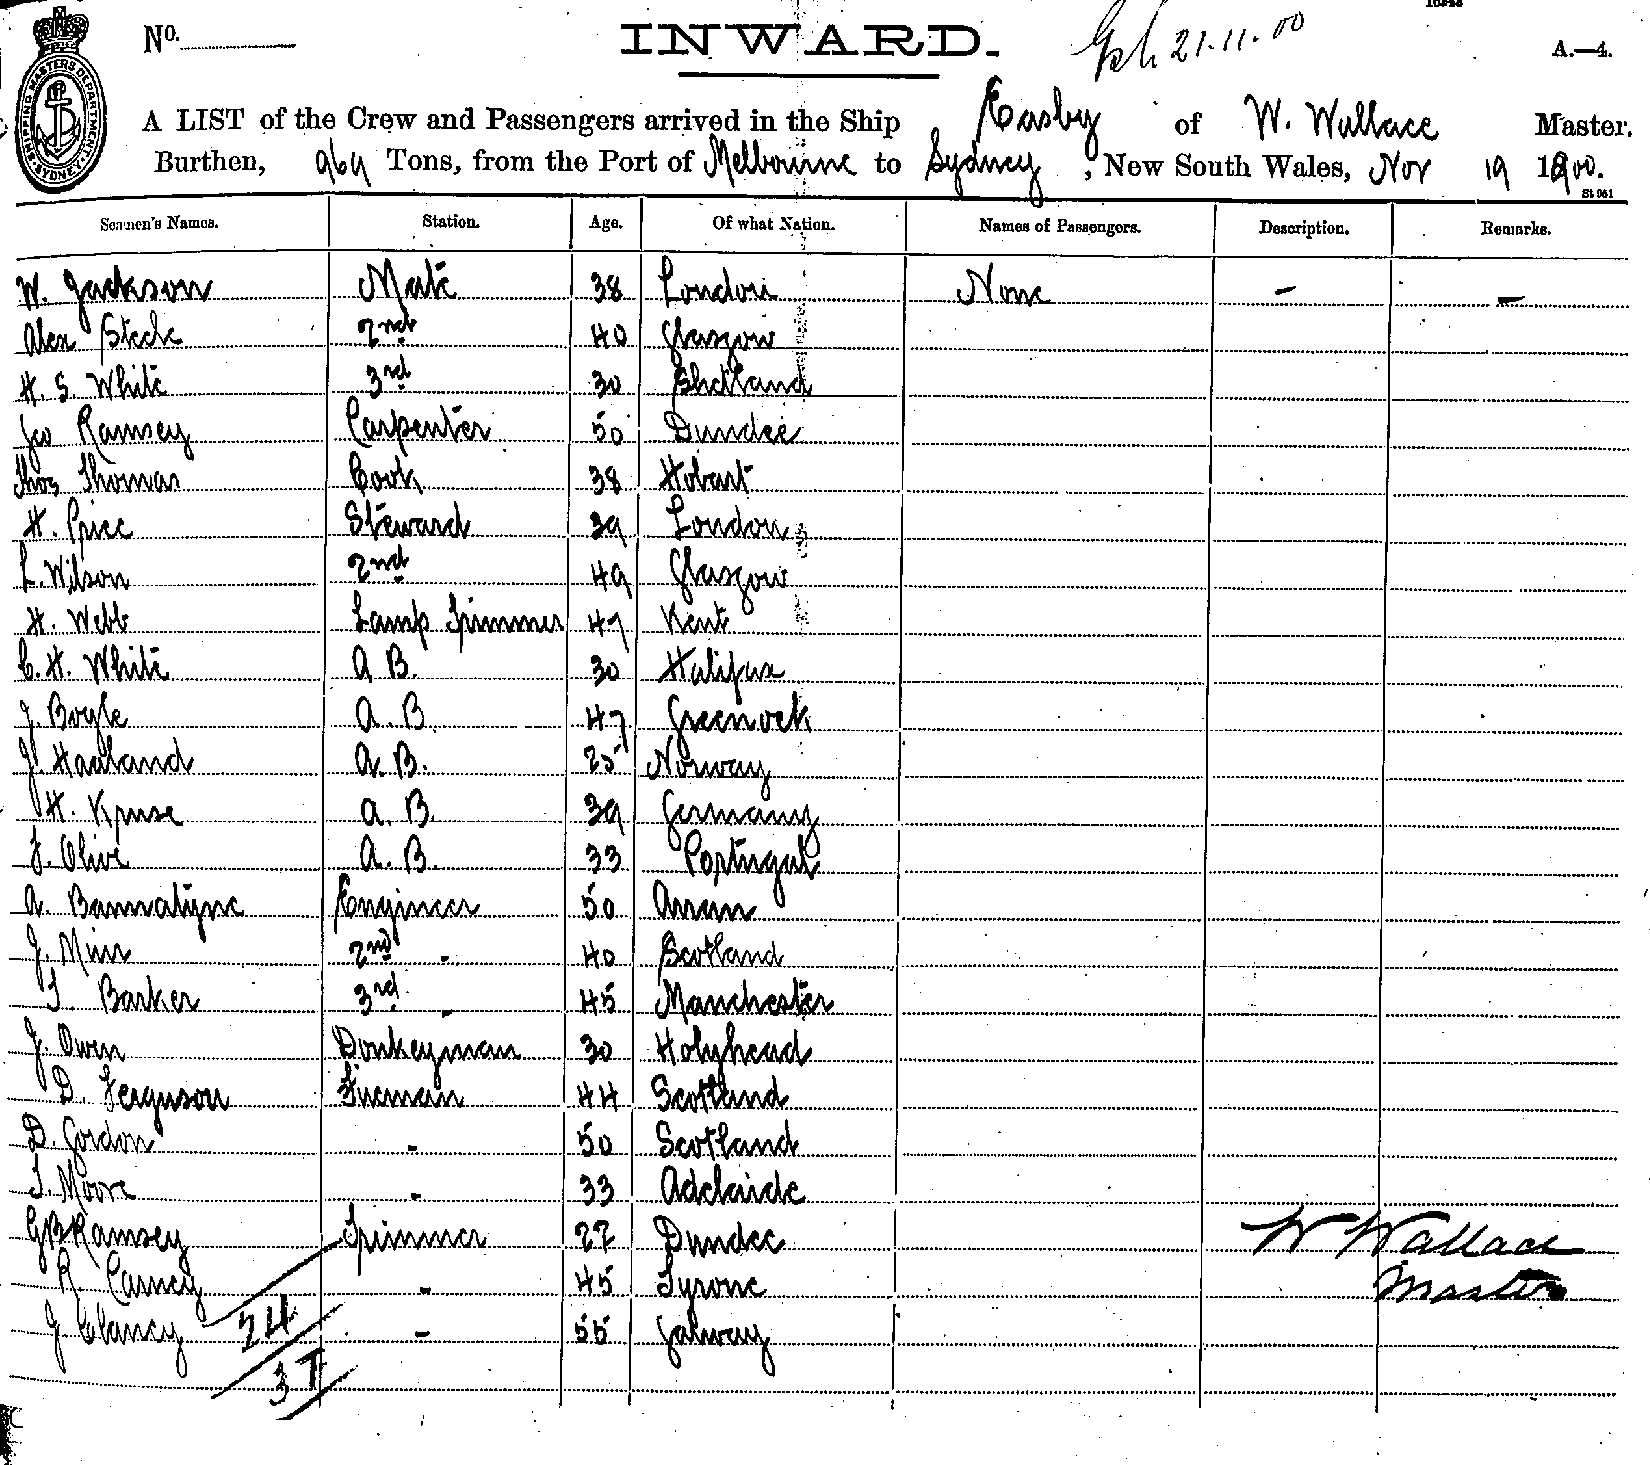 No.
INWARD.
21.11.00
A.—4.
SHIPPING MASTERS DEPARTMENT SYDNEY
A LIST of the Crew and Passengers arrived in the Ship Easby of W. Wallace Master.
Burthen, 969 Tons, from the Port of Melbourne to Sydney, New South Wales, Nov 19 1900.
Seamen's Names. Station. Age. Of what Nation. Names of Passengers. Description. Remarks.
W. Jackson Mate 38 London None – –
Alex Steele 2nd 40 Glasgow
H. S. White 3rd 30 Shetland
Geo Ramsey Carpenter 50 Dundee
Thos Thomas Cook 38 Hobart
H. Price Steward 39 London
L. Wilson 2nd 49 Glasgow
H. Webb Lamp Trimmer 47 Kent
C. H. White A B. 30 Halifax
J. Boyle A. B. 47 Greenock
J. Haaland A. B. 25 Norway
H. Kruse A. B. 39 Germany
F. Olive A. B. 33 Portugal
A. Bannatyne Engineer 50 Arran
J. Muir 2nd - 40 Scotland
T Barker 3rd - 45 Manchester
J. Owen Donkeyman 30 Holyhead
D. Ferguson Fireman 44 Scotland
D. Gordon - 50 Scotland
T. Moore - 33 Adelaide
G B Ramsey Trimmer 22 Dundee W Wallace
R. Carney - 45 Tyrone Master
J. Clancy 24 - 55 Galway
37